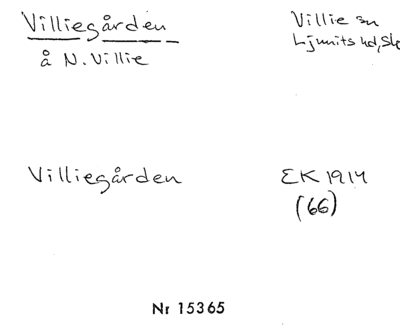 Villiegården
å N. Villie
Villie sn
Ljunits hd, Sk
Villiegården
EK 1914
(66)
Nr 15365